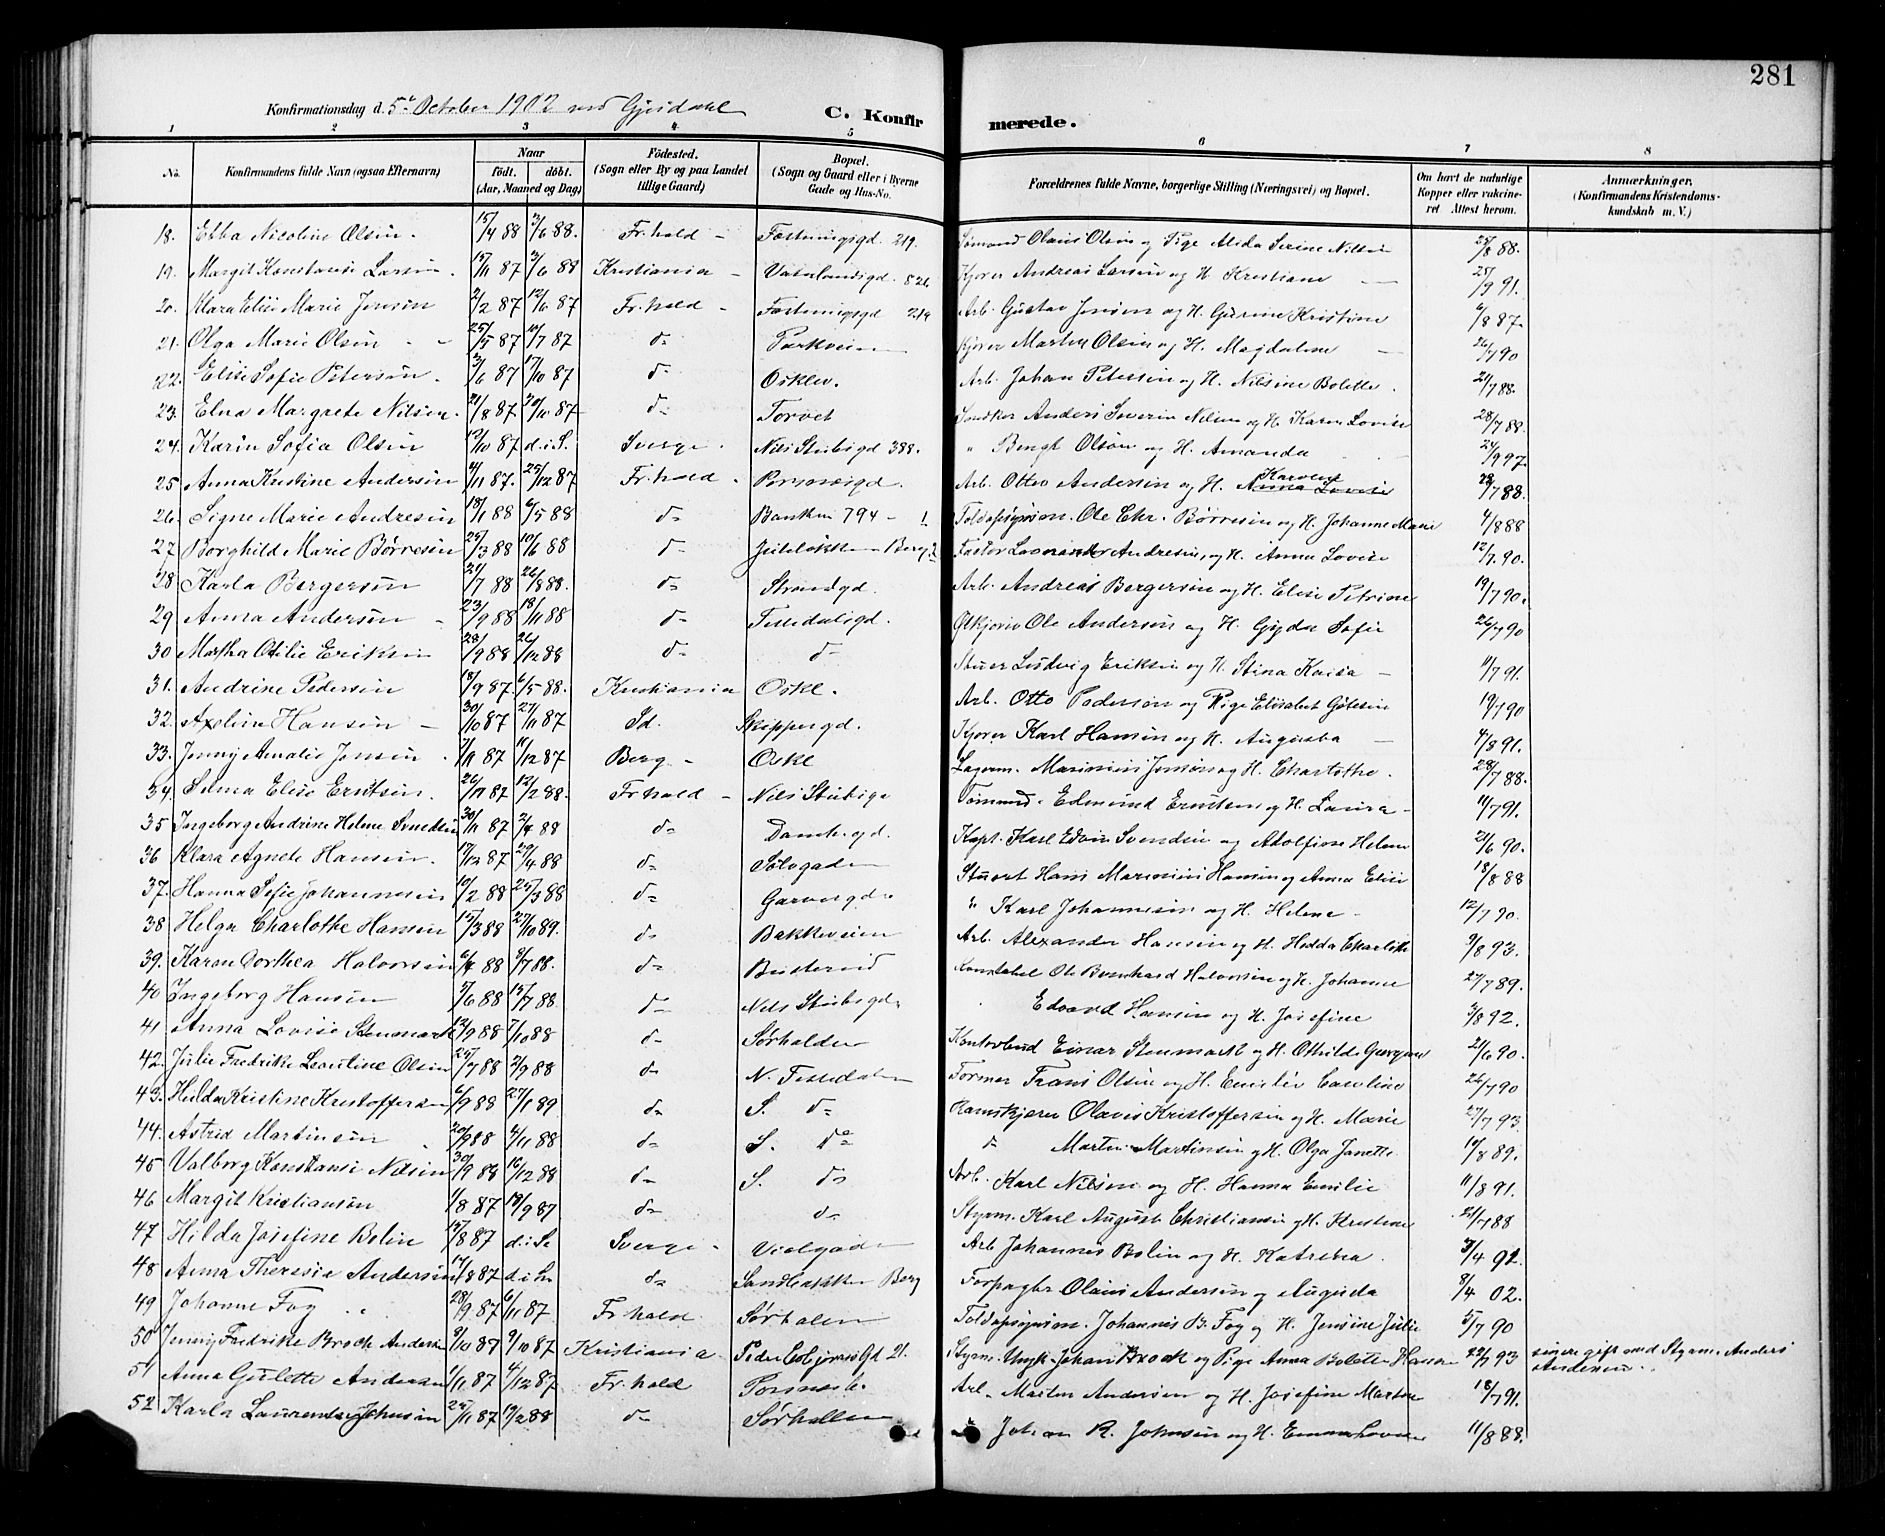 281
Konfirmationsdag d. 5te October 1902 ved Gjesdahl
C. Konfirmerede.
1 2 3 4 5 6 7 8
No. Konfirmandens fulde Navn (ogsaa Efternavn) Naar født. døbt. (Aar, Maaned og Dag) Fødested. (Sogn eller By og paa Landet tillige Gaard) Bopæl. (Sogn og Gaard eller i Byerne Gade og Hus-No. Forældrenes fulde Navne, borgerlige Stilling (Næringsvei) og Bopæl. Om havt de naturlige Kopper eller vaccineret Attest herom. Anmærkninger. (Konfirmandens Kristendomskundskab m. V.)
18. Ebba Nicoline Olsen 15/4 88 3/6 88. Fr.hald - Fæstningsgd. 219. Sømand Olaus Olsen og Pige Alida Serine Nilsen 25/8 88.
19. Margit Konstanse Larsen 15/11 87 3/6 88 Kristiania - Vaterlandsgd. 826 Kjører Andreas Larsen og H. Kristiane 25/9 91.
20. Klara Elise Marie Jensen 2/2 87 12/6 87 Fr.hald - Fæstningsgd 219 Arb. Gustav Jensen og H. Gurine Kristine 6/8 87.
21. Olga Marie Olsen 25/5 87 10/7 87 do Parkveien Kjører Martin Olsen og H. Magdalene 26/7 90
22. Elise Sofie Petersen 3/6 87 17/10 87 do Osklev. Arb. Johan Petersen og H. Nilsine Bolette 21/7 88.
23. Elna Margrete Nilsen. 21/8 87 30/10 87 do Torvet Anders Severin Nilsen og H. Karen Lovise 28/7 88.
24. Karin Sofia Olsen 12/10 87 d. i S. Sverge. Nils Stubsgd 388. " Bengt Olsen og H. Amanda 24/9 97.
25 Anna Kristine Andersen 4/11 87. 25/12 87 Fr.hald Porsnæsgd. Arb. Otto Andersen og H. Karoline Anna Lovise 23/7 88.
26. Signe Marie Andresen 18/1 88 6/5 88 do Banken 794 - 1 Toldopsynsm. Ole Chr. Børresen og H. Johanne Marie 4/8 88
27 Borghild Marie Børresen 25/3 88 10/6 88 do Jeilebøkken Berg Factor Andresen, og H. Anna Lovise 12/7. 90.
28. Karla Bergersen 21/7 88 26/8 88. do Strandgd. Arb. Andreas Bergersen og H. Elise Petrine 19/7 90.
29 Anna Andersen 23/9 88 18/11 88 do Tistedalsgd. Ølkjører Ole Andersen og H. Gyda Sofie 26/7 90
30 Martha Otilie Eriksen 28/9 88 26/12 88 do do Stuer Ludvig Eriksen og H. Stina Kaisa 11/7 91.
31. Andrine Pedersen 18/9 87. 6/5 88. Kristiania Oskl. Arb. Otto Pedersen og Pige Elisabet 19/7 90
32. Axeline Hansen 30/10 87 27/11 87 Id. Skippergd. Kjører Karl Hansen og H. Augusta 4/8 91.
33. Jenny Amalie Jensen 7/11 87 11/12 87 Berg - Oskl Lagerm. Marinius Jensen og H. Charlotte. 28/7 88.
34. Selma Elise Erntsen. 26/11 87 12/2 88. Fr.hald - Nils Stubsgd Tømmerm. Edmund Erntsen og H. Laura 11/7 91.
35 Ingeborg Andrine Helene Svendsen 30/11 87 2/4 88 do Damh.gd. Kapt. Karl Edvin Svendsen og Adolfine Helene 21/6 90.
36 Klara Agnete Hansen. 17/12 87 29/4 88 do Sølvgaden Stuert Hans Marinius Hansen og Anna Elise 18/8 88
37. Hanna Sofie Johannesen 10/2 88 25/3 88 do Garvergd. " Karl Johannesen og H. Helene 12/7 90.
38 Helga Charlotte Hansen 15/3 88 27/10 89. do Bakkeveien Arb. Alexander Hansen og H. Hedda Charlotte 9/8 93.
39. Karen Dorthea Halvorsen 6/4 88 8/7 88. do Busterud Konstabel Ole Bernhard Halvorsen og H. Johanne 27/7 89.
40 Ingeborg Hansen 3/6 88 15/7 88. do Nils Stubsgd. Edvard Hansen og H. Josefine 3/8 92.
41 Anna Lovise Stenmark 12/9 88 7/10 88 do Sørhalden Kontorbud Einar Stenmark og H. Othilde Georgine 21/6 90.
42. Julie Fredrikke Leontine Olsen 25/7 88 2/9 88 do N. Tistedalen Former Frans Olsen og H. Emilie Caroline 26/7 90
43. Hilda Kristine Kristoffersen 6/9 88 27/1 89 do S. do Ramskjører Olavus Kristoffersen og H. Marie 27/7 93.
44. Astrid Martinsen 20/9 88 4/11 88 do S. do do Martin Martinsen og H. Olga Janette 14/8 89.
45 Valborg Konstanse Nilsen 30/9 88 16/12 88 do S. do Arb. Karl Nilsen og H. Hanna Emilie 11/8 91.
46 Margit Kristiansen 1/8 87 18/9 87 do do Styrm. Karl August Christiansen og H. Kristine 21/7 88
47 Hilda Josefine Bolin 15/8 87 d. i S. Sverge - Violgaden Arb Johannes Bolin og H. Katrina 3/4 92.
48 Anna Theresia Andersen 17/8 87 d. i S. do Sandbakken Berg Forpagter Olaus Andersen og Augusta 8/4 02.
49 Johanne Fog 28/9 87 6/11 87 Fr.hald. Sørhalden Toldopsynsm. Johannes B. Fog og H. Jensine Julie 5/7 90
50 Jenny Fredrikke Brock Andersen 9/10 87 9/10 87 Kristiania Peder Colbjørnsens Gd 21. Styrm. Ungk. Johan Brock og Pige Anna Bolette Hansen 22/7 93 senere gift med Styrm. Anders Andersen.
51 Anna Gulette Andersen 1/11 87 4/12 87 Fr.hald Porsnæsb. Arb. Martin Andersen og H. Josefine Marthe 18/7 91.
52 Karla Laurentse Johnsen 24/11 87 19/2 88 do Sørhalden Johan R. Johnsen og H. Emma Lovise 11/8 88.